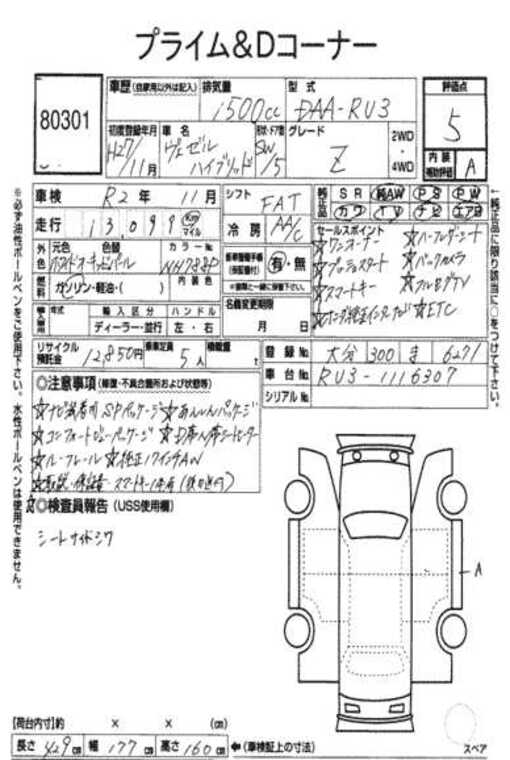 プライム&Dコーナー
80301
車歴 (自家用以外は記入)
排気量 1500cc
型式 DAA-RU3
評価点 5
初度登録年月 H27/11月
車名 ヴェゼル ハイブリッド
形状・ドア数 SW/5
グレード Z
2WD・4WD
内装補助評価 A
車検 R2年 11月
シフト FAT
純正品 SR 純AW PS PW
カワ TV ナビ エアB
走行 13,099 km マイル
冷房 AA/C
外色 元色 色替 カラーNo.
NH788P
内装色
燃料 ガソリン・軽油・( )
輸入車 年式 輸入区分 ハンドル
ディーラー・並行 左・右
有・無
名義変更期限
月 日
セールスポイント
☆ワンオーナー ☆ハーフレザーシート
☆プッシュスタート ☆バックカメラ
☆スマートキー ☆フルセグTV
☆ETC
リサイクル預託金 12,850円
乗車定員 5人
積載量 t
登録No. 大分 300 ま 6271
車台No. RU3-1116307
シリアルNo.
◎注意事項 (修復・不具合箇所および状態等)
☆ナビ装着用SPパッケージ ☆あんしんパッケージ
☆コンフォートビューパッケージ ☆D席N席シートヒーター
☆ルーフレール ☆純正17インチAW
◎検査員報告 (USS使用欄)
シートサイドシワ
A
※必ず油性ボールペンをご使用下さい。水性ボールペンは使用できません。
←純正品に限り該当に○をつけて下さい。
【荷台内寸】約 × × (cm)
長さ 429cm 幅 177cm 高さ 160cm ←(車検証上の寸法)
スペア